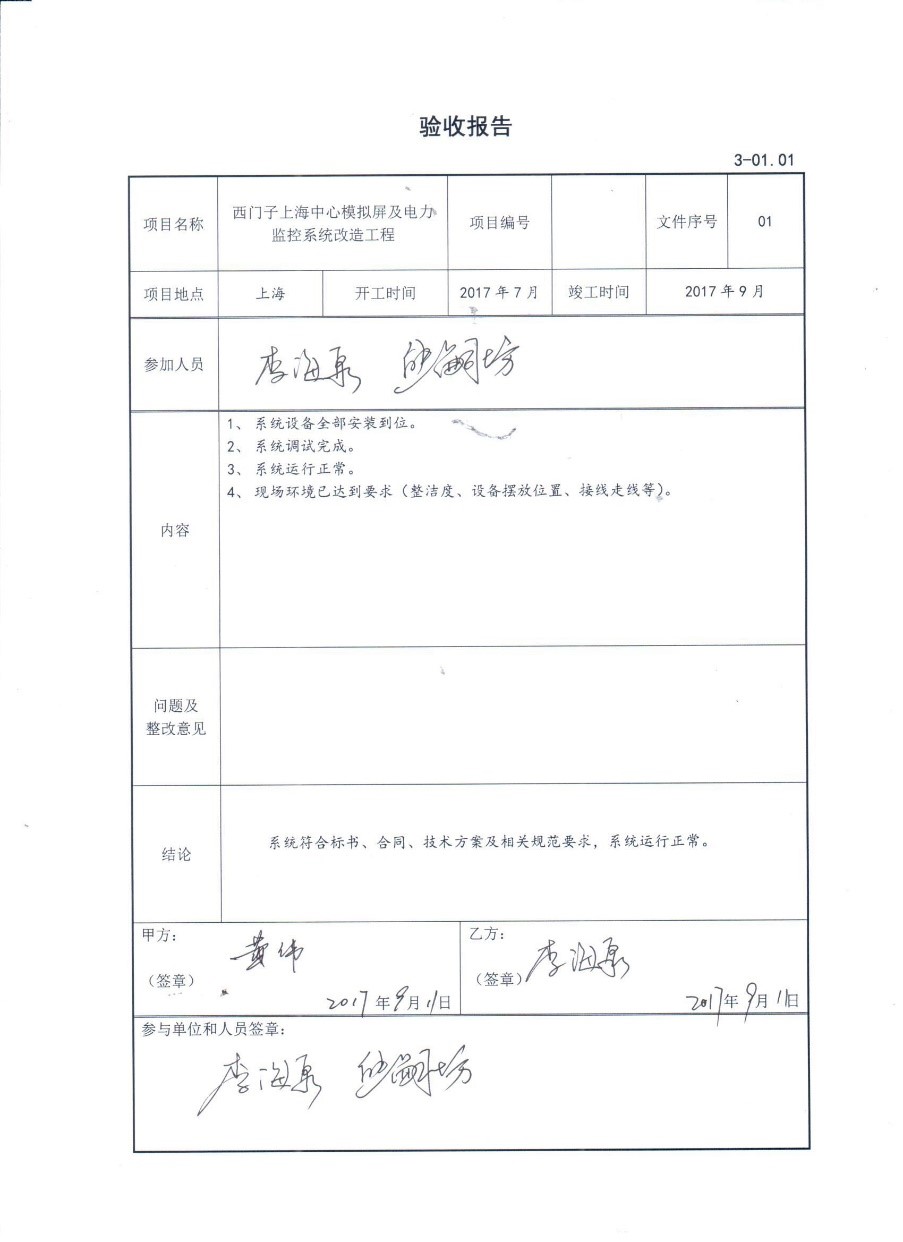 验收报告
3-01.01
项目名称
西门子上海中心模拟屏及电力
监控系统改造工程
项目编号
文件序号
01
项目地点
上海
开工时间
2017 年 7 月
竣工时间
2017 年 9 月
参加人员
李海泉
内容
1、 系统设备全部安装到位。
2、 系统调试完成。
3、 系统运行正常。
4、 现场环境已达到要求（整洁度、设备摆放位置、接线走线等）。
问题及
整改意见
结论
系统符合标书、合同、技术方案及相关规范要求，系统运行正常。
甲方：
黄伟
（签章）
2017 年 9 月 11 日
乙方：
李海泉
（签章）
2017 年 9 月 11 日
参与单位和人员签章：
李海泉